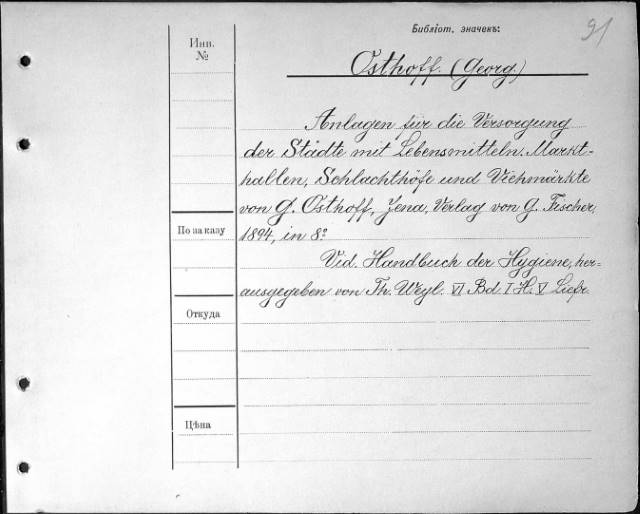 Библіот. значекъ:
91
Инв.
№
Osthoff. (Georg.)
Anlagen für die Versorgung
der Städte mit Lebensmitteln. Markt-
hallen, Schlachthöfe und Viehmärkte
von G. Osthoff, Jena, Verlag von G. Fischer,
По заказу
1894, in 8º
Vid. Handbuch der Hygiene, her-
ausgegeben von Th. Weyl. VI Bd I H. V Liefr.
Откуда
Цѣна